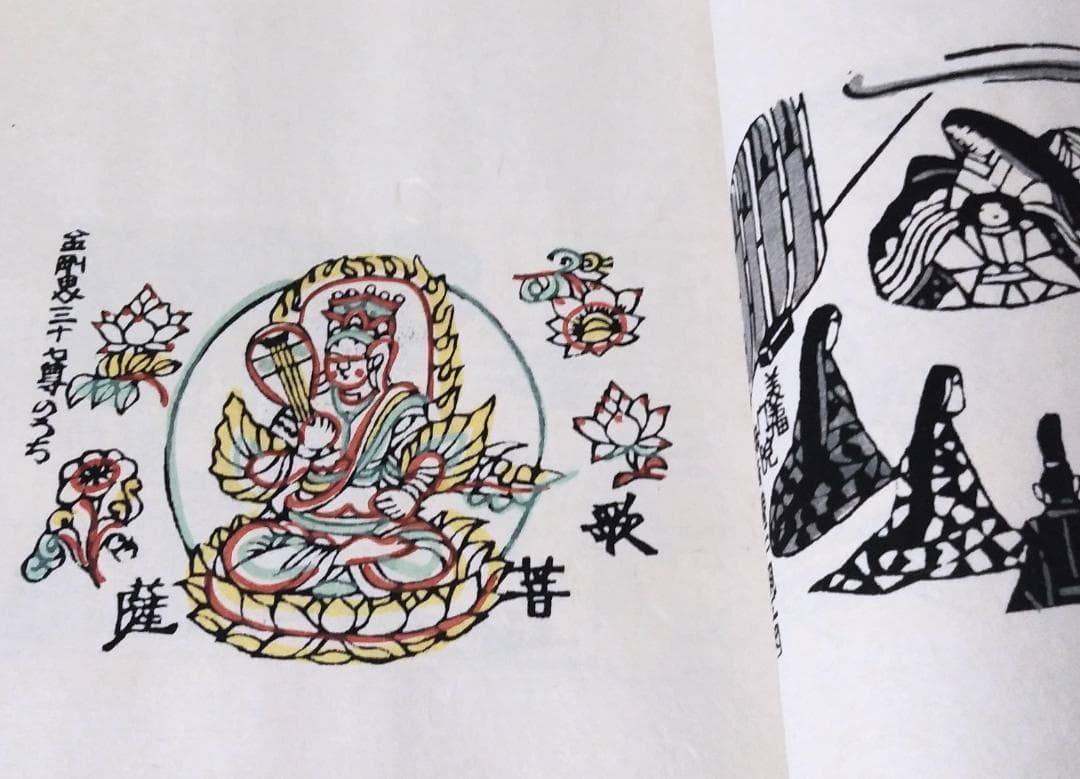 金剛界三十七尊のうち
歌
菩
薩
美福門院